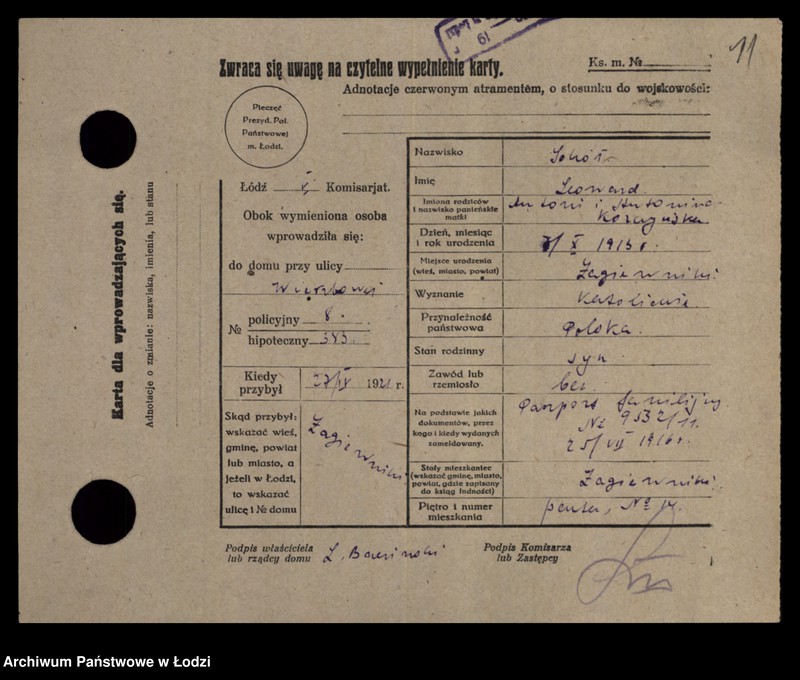 11
Zwraca się uwagę na czytelne wypełnienie karty.
Ks. m. №
Adnotacje czerwonym atramentem, o stosunku do wojskowości:
Pieczęć
Prezyd. Pol.
Państwowej
m. Łodzi.
Łódź V Komisarjat.
Obok wymieniona osoba
wprowadziła się:
do domu przy ulicy
№ policyjny 8.
hipoteczny 383.
Kiedy przybył 27/IX 1921 r.
Skąd przybył:
wskazać wieś,
gminę, powiat
lub miasto, a
jeżeli w Łodzi,
to wskazać
ulicę i № domu
Żagiewniki
Nazwisko Sokół
Imię Leonard
Imiona rodziców
i nazwisko panieńskie
matki
Antoni i Antonina
Dzień, miesiąc
i rok urodzenia
X 1915 r.
Miejsce urodzenia
(wieś, miasto, powiat)
Żagiewniki
Wyznanie katolickie
Przynależność
państwowa
Polska.
Stan rodzinny syn
Zawód lub
rzemiosło
bez
Na podstawie jakich
dokumentów, przez
kogo i kiedy wydanych
zameldowany.
Paszport familijny
№ 9532/11.
25/VII 1916 r.
Stały mieszkaniec
(wskazać gminę, miasto,
powiat, gdzie zapisany
do ksiąg ludności)
Żagiewniki
Piętro i numer
mieszkania
parter, № 14.
Podpis właściciela
lub rządcy domu
Podpis Komisarza
lub Zastępcy
Karta dla wprowadzających się.
Adnotacje o zmianie: nazwiska, imienia, lub stanu
Archiwum Państwowe w Łodzi